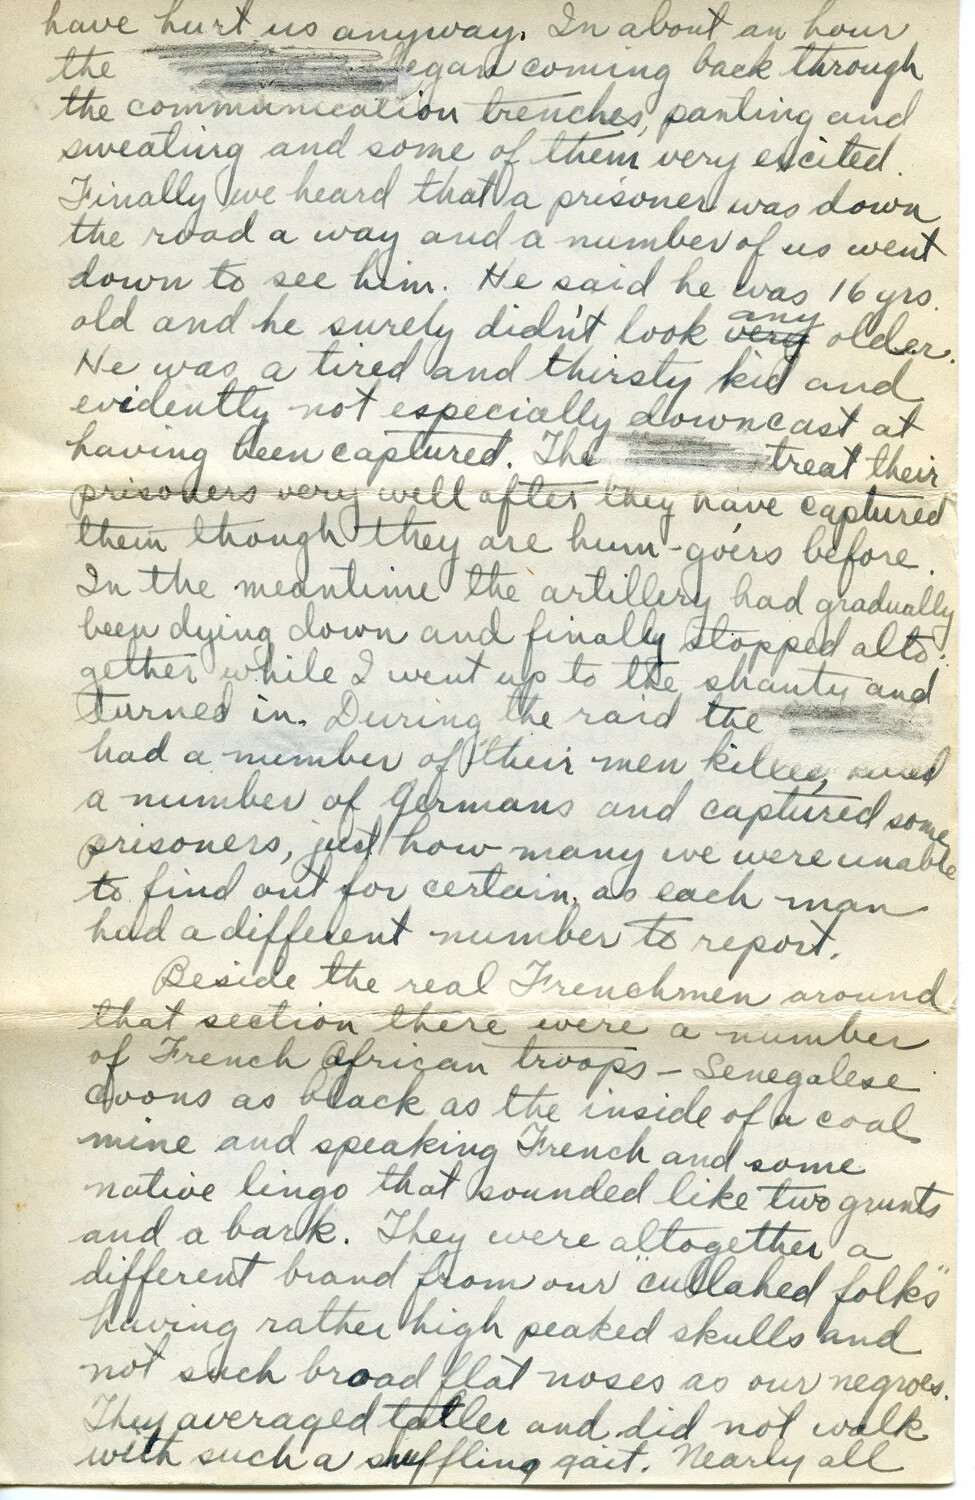 have hurt us anyway. In about an hour
the began coming back through
the communication trenches, panting and
sweating and some of them very excited.
Finally we heard that a prisoner was down
the road a way and a number of us went
down to see him. He said he was 16 yrs.
any
old and he surely didn't look very older.
He was a tired and thirsty kid and
evidently not especially downcast at
having been captured. The treat their
prisoners very well after they have captured
them though they are hum-goers before.
In the meantime the artillery had gradually
been dying down and finally stopped alto-
gether while I went up to the shanty and
turned in. During the raid the
had a number of their men killed, killed
a number of Germans and captured some
prisoners, just how many we were unable
to find out for certain, as each man
had a different number to report.
Beside the real Frenchmen around
that section there were a number
of French African troops - Senegalese
coons as black as the inside of a coal
mine and speaking French and some
native lingo that sounded like two grunts
and a bark. They were altogether a
different brand from our "cullahed folks"
having rather high peaked skulls and
not such broad flat noses as our negroes.
They averaged taller and did not walk
with such a suffling gait. Nearly all